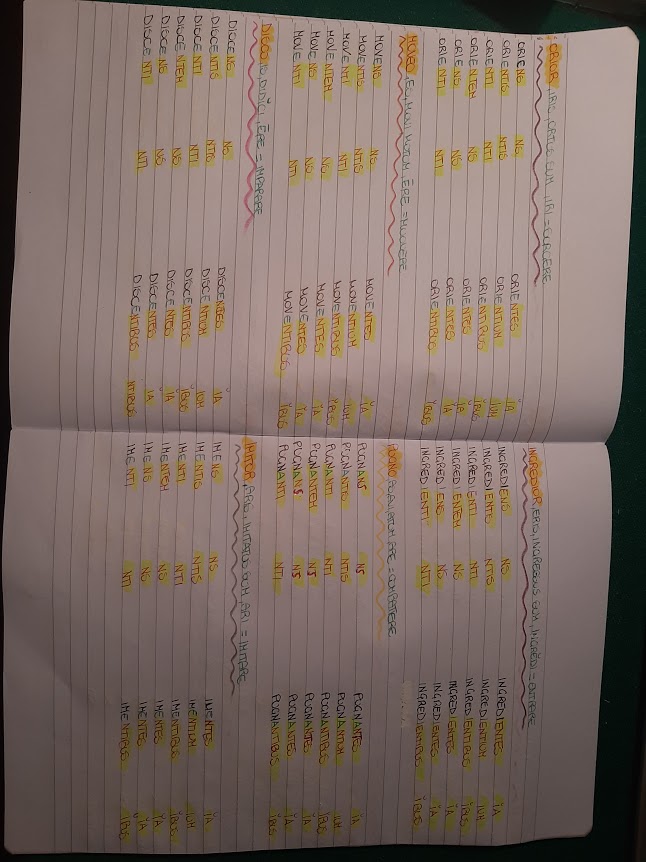 ORIOR, IRIS, ORTUS SUM, IRI = SORGERE
ORIENS NS ORIENTES ĬA
ORIENTIS NTIS ORIENTIUM IUM
ORIENTI NTI ORIENTIBUS ĬBUS
ORIENTEM NS ORIENTES ĬA
ORIENS NS ORIENTES ĬA
ORIENTI NTI ORIENTIBUS ĬBUS
MOVEO, ES, MOVI, MOTUM, ĒRE = MUOVERE
MOVENS NS MOVENTES ĬA
MOVENTIS NTIS MOVENTIUM ĬUM
MOVENTI NTI MOVENTIBUS ĬBUS
MOVENTEM NS MOVENTES ĬA
MOVENS NS MOVENTES ĬA
MOVENTI NTI MOVENTIBUS ĬBUS
DISCO, IS, DIDĬCI, ĔRE = IMPARARE
DISCENS NS DISCENTES ĬA
DISCENTIS NTIS DISCENTIUM ĬUM
DISCENTI NTI DISCENTIBUS ĬBUS
DISCENTEM NS DISCENTES ĬA
DISCENS NS DISCENTES ĬA
DISCENTI NTI DISCENTIBUS NTIBUS
INGREDIOR, ERIS, INGRESSUS SUM, INGRĔDI = ENTRARE
INGREDIENS NS INGREDIENTES ĬA
INGREDIENTIS NTIS INGREDIENTIUM ĬUM
INGREDIENTI NTI INGREDIENTIBUS ĬBUS
INGREDIENTEM NS INGREDIENTES ĬA
INGREDIENS NS INGREDIENTES ĬA
INGREDIENTI NTI INGREDIENTIBUS ĬBUS
PUGNO, PUGNAVI, ATUM, ARE = COMBATTERE
PUGNANS NS PUGNANTES ĬA
PUGNANTIS NTIS PUGNANTIUM IUM
PUGNANTI NTI PUGNANTIBUS ĬBUS
PUGNANTEM NS PUGNANTES ĬA
PUGNANS NS PUGNANTES ĬA
PUGNANTI NTI PUGNANTIBUS ĬBUS
IMITOR, ARIS, IMITATUS SUM, ARI = IMITARE
IMENS NS IMENTES ĬA
IMENTIS NTIS IMENTIUM IUM
IMENTI NTI IMENTIBUS ĬBUS
IMENTEM NS IMENTES ĬA
IMENS NS IMENTES ĬA
IMENTI NTI IMENTIBUS ĬBUS